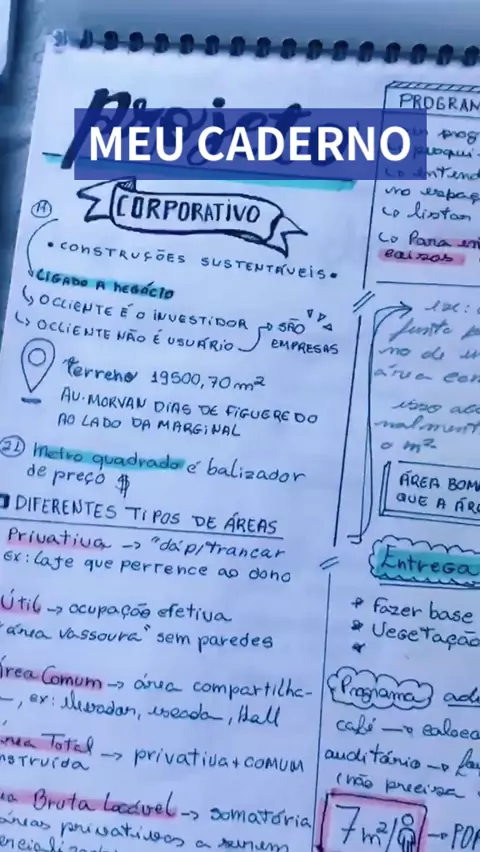 Projeto
MEU CADERNO
CORPORATIVO
• CONSTRUÇÕES SUSTENTÁVEIS •
LIGADO A NEGÓCIO
↳ O CLIENTE É O INVESTIDOR
↳ O CLIENTE NÃO É USUÁRIO → SÃO EMPRESAS
terreno 19500,70 m²
AV. MORVAN DIAS DE FIGUEREDO
AO LADO DA MARGINAL
21 metro quadrado é balizador
de preço $
DIFERENTES TIPOS DE ÁREAS
Privativa → "dá p/ trancar
ex: laje que perrence ao dono
Útil → ocupação efetiva
"área vassoura" sem paredes
Área Comum → área compartilha-
ex: elevador, escada, Hall
Área Total → privativa + COMUM
Bruta Locável → somatória
áreas privativas a serem
PROGRAM
prog
entend
no espaç
↳ listar
↳ Para
ex:
junto
no de
área
isso
nalment
o m²
ÁREA BOM
QUE A ÁR
Entrega
* Fazer base
* Vegetação
*
Programa
café →
auditório →
(não precisa
7m²/ →